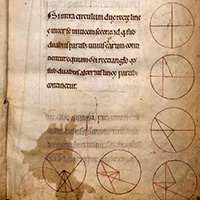 Si intra circulum due recte line
e inter se invicem secent id sub
duabus partib; unius earum con
tinetur equum est ei rectanglo
duabus alterius linee partib;
continetur.